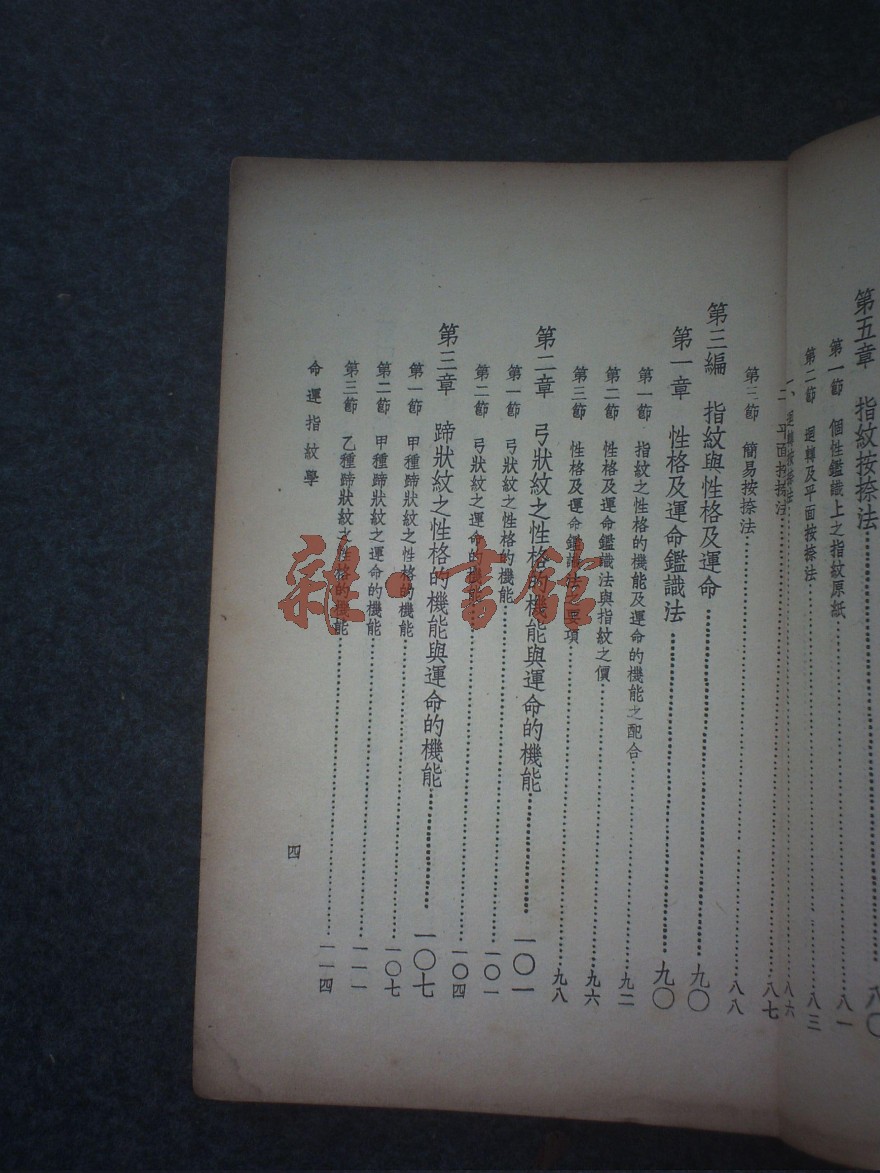 第五章　指紋按捺法………八〇
第一節　個性鑑識上之指紋原紙………八一
第二節　迴轉及平面按捺法………八三
一、迴轉按捺法………八六
二、平面按捺法………八七
第三節　簡易按捺法………八八
第三編　指紋與性格及運命………九〇
第一章　性格及運命鑑識法………九〇
第一節　指紋之性格的機能及運命的機能之配合………九二
第二節　性格及運命鑑識法與指紋之價………九六
第三節　性格及運命鑑識法之要項………九八
第二章　弓狀紋之性格的機能與運命的機能………一〇一
第一節　弓狀紋之性格的機能………一〇一
第二節　弓狀紋之運命的機能………一〇四
第三章　蹄狀紋之性格的機能與運命的機能………一〇七
第一節　甲種蹄狀紋之性格的機能………一〇七
第二節　甲種蹄狀紋之運命的機能………一一一
第三節　乙種蹄狀紋之性格的機能………一一四
命運指紋學
四
雜·書館